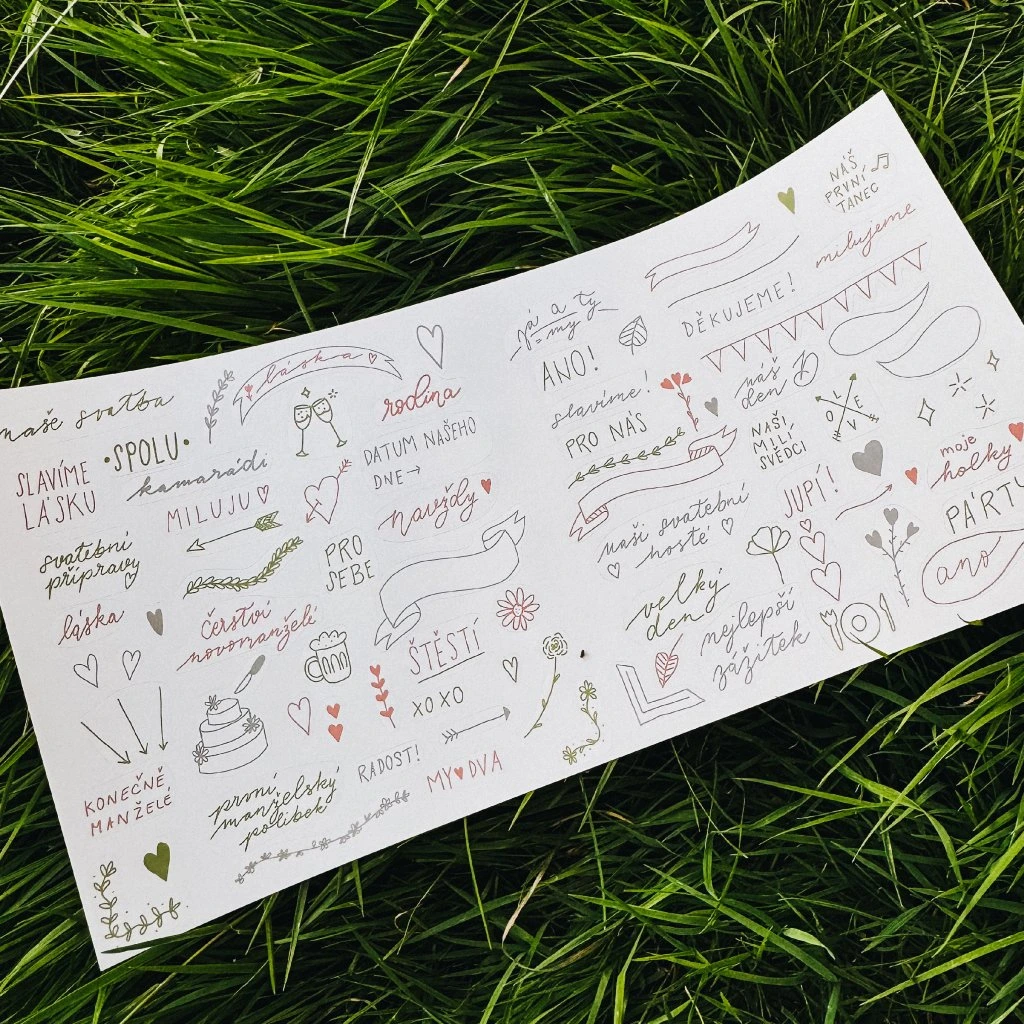 naše svatba
láska
rodina
SPOLU
SLAVÍME
LÁSKU
kamarádi
DATUM NAŠEHO
DNE
MILUJU
navždy
svatební
přípravy
PRO
SEBE
láska
čerství
novomanželé
ŠTĚSTÍ
XOXO
KONEČNĚ
MANŽELÉ
první
manželský
polibek
RADOST!
MY DVA
já a ty
= my
ANO!
DĚKUJEME!
NÁŠ
PRVNÍ
TANEC
milujeme
slavíme!
náš
den D
PRO NÁS
NAŠI
MILÍ
SVĚDCI
L O
V E
moje
holky
naši svatební
hosté
JUPÍ!
PÁRTY
ano
velký
den
nejlepší
zážitek